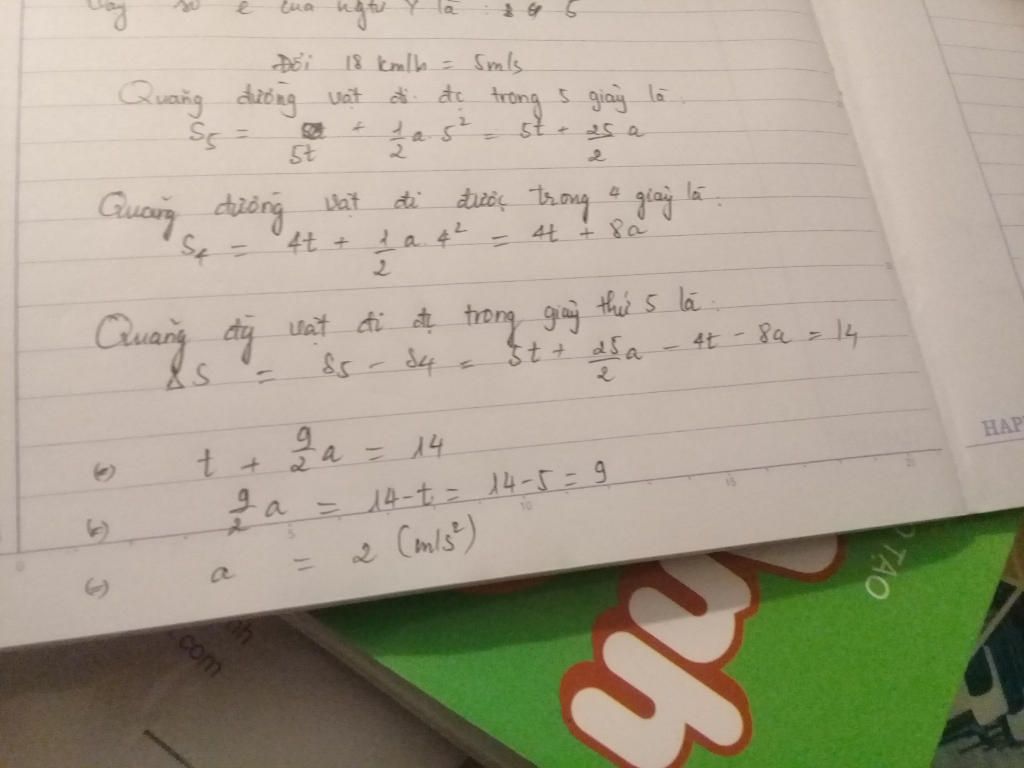 Vậy số e của ngtử Y là : 5
Đổi 18 km/h = 5m/s
Quãng đường vật đi đc trong 5 giây là :
S5 = 5t + 1/2 a 5² = 5t + 25/2 a
Quãng đường vật đi được trong 4 giây là :
S4 = 4t + 1/2 a.4² = 4t + 8a
Quãng đg vật đi đc trong giây thứ 5 là :
ΔS = S5 - S4 = 5t + 25/2 a - 4t - 8a = 14
(=) t + 9/2 a = 14
(=) 9/2 a = 14-t = 14-5 = 9
(=) a = 2 (m/s²)
HAP
0 5 10 15 20
TẠO
nh
.com